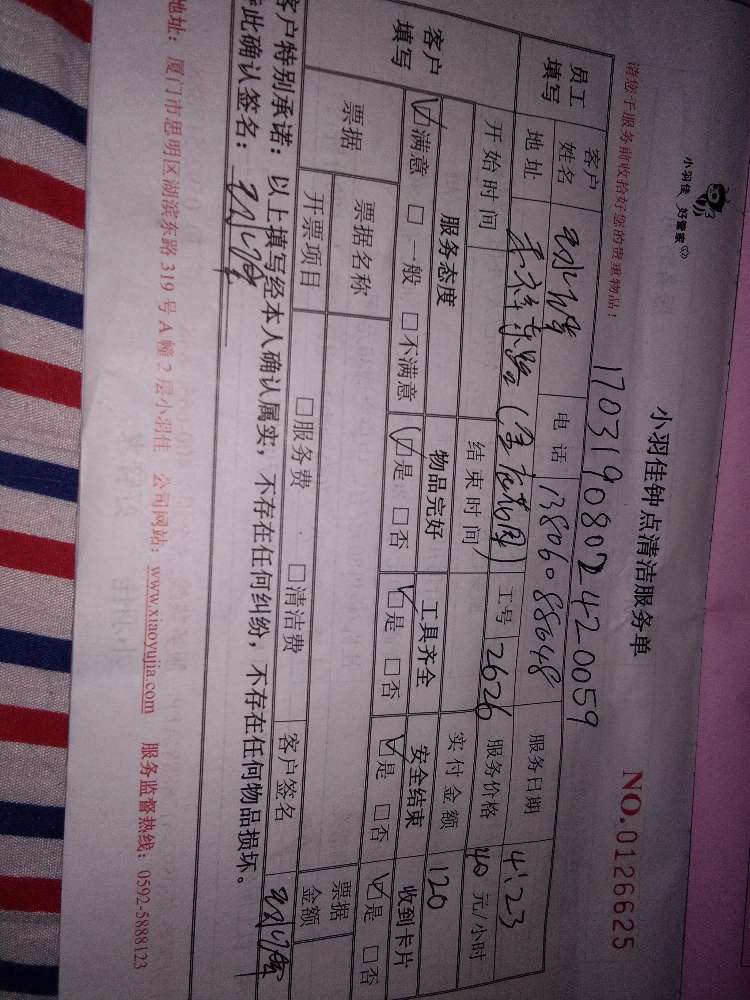 小羽佳 好管家
小羽佳钟点清洁服务单
NO.0126625
请您于服务前收拾好您的贵重物品！
1703190802420059
员工填写 客户姓名 电话 13806088648 服务日期 4.23
地址 工号 2626 服务价格 40 元/小时
客户填写 开始时间 结束时间 实付金额 120
服务态度 物品完好 工具齐全 安全结束 收到卡片
☑满意 □一般 □不满意 ☑是 □否 ☑是 □否 ☑是 □否 ☑是 □否
票据 票据名称 票据金额
开票项目 □服务费 □清洁费 客户签名
客户特别承诺：以上填写经本人确认属实，不存在任何纠纷，不存在任何物品损坏。
特此确认签名：
地址：厦门市思明区湖滨东路319号A幢2层小羽佳 公司网站：www.xiaoyujia.com 服务监督热线：0592-5888123